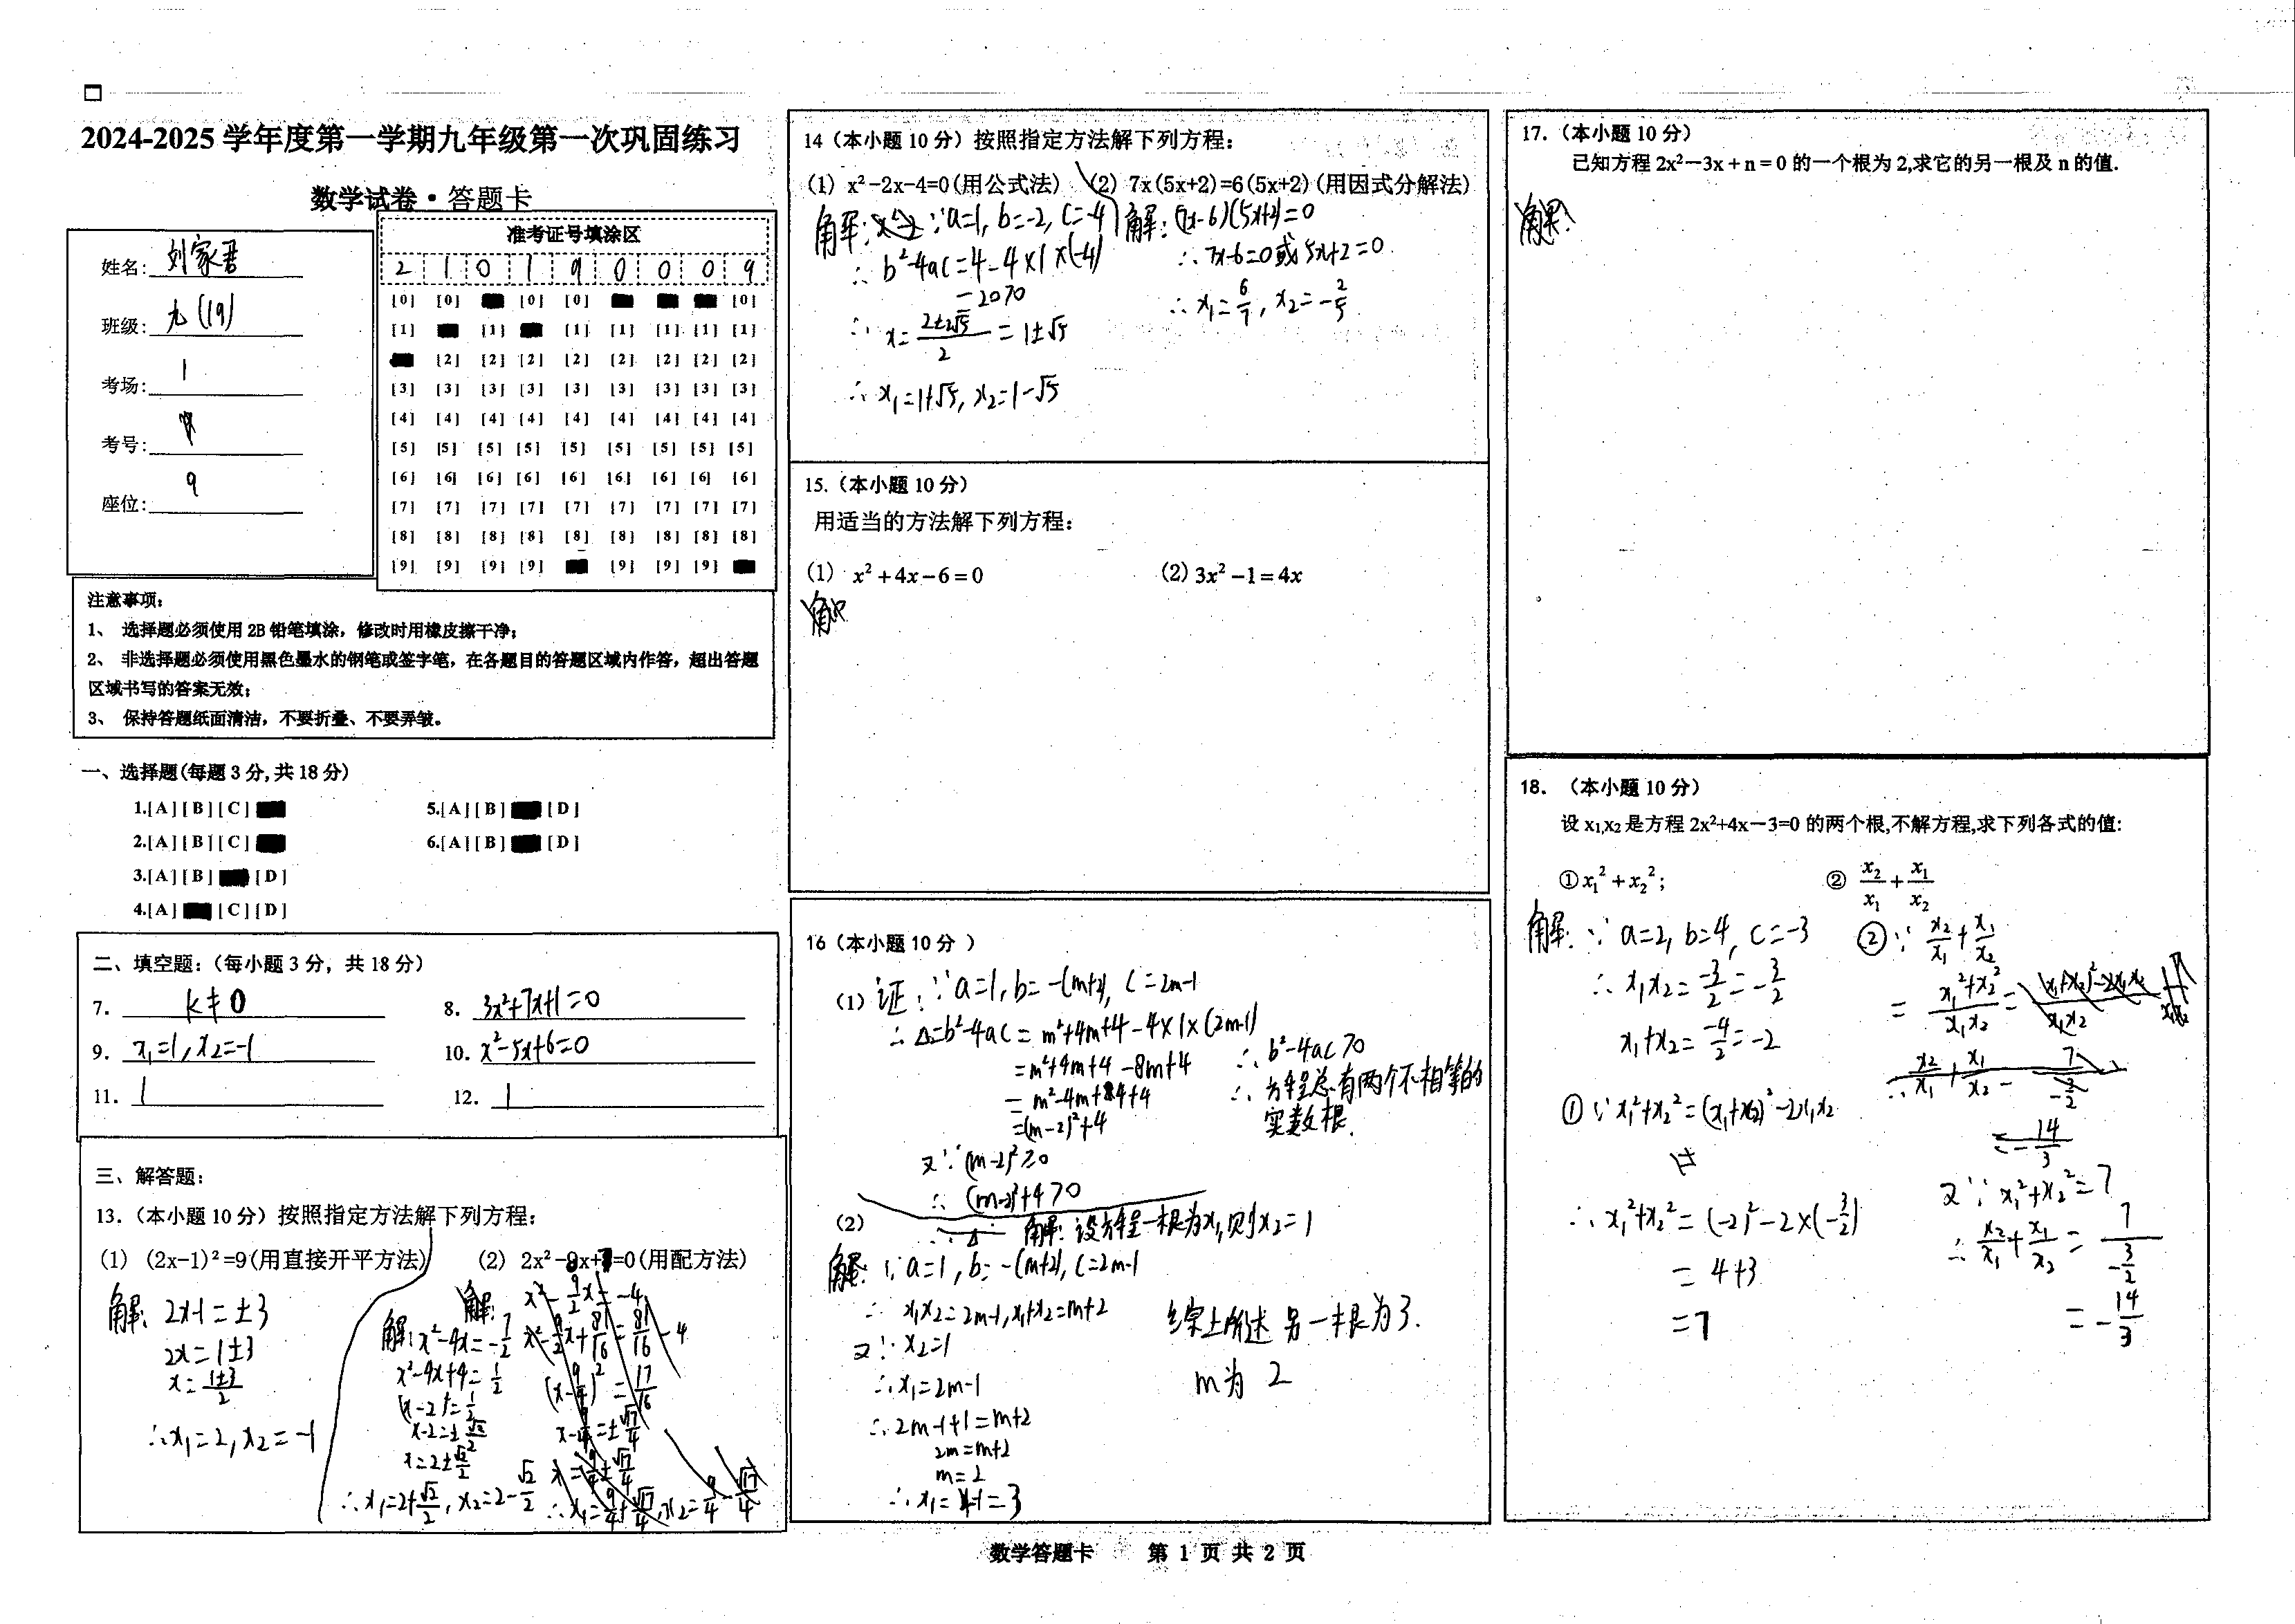 2024-2025 学年度第一学期九年级第一次巩固练习
数学试卷·答题卡
姓名: 刘家君
班级: 九(19)
考场: 1
考号:
座位: 9
准考证号填涂区
2 1 0 1 9 0 0 0 9
[0] [0] [0] [0] [0]
[1] [1] [1] [1] [1] [1] [1]
[2] [2] [2] [2] [2] [2] [2] [2]
[3] [3] [3] [3] [3] [3] [3] [3] [3]
[4] [4] [4] [4] [4] [4] [4] [4] [4]
[5] [5] [5] [5] [5] [5] [5] [5] [5]
[6] [6] [6] [6] [6] [6] [6] [6] [6]
[7] [7] [7] [7] [7] [7] [7] [7] [7]
[8] [8] [8] [8] [8] [8] [8] [8] [8]
[9] [9] [9] [9] [9] [9] [9]
注意事项:
1、 选择题必须使用 2B 铅笔填涂，修改时用橡皮擦干净;
2、 非选择题必须使用黑色墨水的钢笔或签字笔，在各题目的答题区域内作答，超出答题
区域书写的答案无效;
3、 保持答题纸面清洁，不要折叠、不要弄皱。
一、选择题(每题 3 分,共 18 分)
1.[A] [B] [C] 5.[A] [B] [D]
2.[A] [B] [C] 6.[A] [B] [D]
3.[A] [B] [D]
4.[A] [C] [D]
二、填空题:(每小题 3 分，共 18 分)
7. k≠0 8. 3x²+7x+1=0
9. x₁=1, x₂=-1 10. x²-5x+6=0
11. 1 12. 1
三、解答题:
13.(本小题 10 分) 按照指定方法解下列方程:
(1) (2x-1)²=9(用直接开平方法) (2) 2x²-8x+7=0(用配方法)
解: 2x-1=±3
2x=1±3
x=(1±3)/2
∴x₁=2, x₂=-1
解: x²-4x=-7/2
x²-4x+4=1/2
(x-2)²=1/2
x-2=±√2/2
x=2±√2/2
∴x₁=2+√2/2, x₂=2-√2/2
解: x²-9/2x=-4
x²-9/2x+81/16=81/16-4
(x-9/4)²=17/16
x-9/4=±√17/4
x=9/4±√17/4
∴x₁=9/4+√17/4, x₂=9/4-√17/4
14(本小题 10 分) 按照指定方法解下列方程:
(1) x²-2x-4=0(用公式法) (2) 7x(5x+2)=6(5x+2)(用因式分解法)
解: ∵a=1, b=-2, c=-4
∴ b²-4ac=4-4×1×(-4)
=20>0
∴ x=(2±2√5)/2=1±√5
∴ x₁=1+√5, x₂=1-√5
解: (7x-6)(5x+2)=0
∴7x-6=0或5x+2=0
∴x₁=6/7, x₂=-2/5
15.(本小题 10 分)
用适当的方法解下列方程:
(1) x²+4x-6=0 (2) 3x²-1=4x
解
16(本小题 10 分 )
(1) 证: ∵a=1, b=-(m+2), c=2m-1
∴Δ=b²-4ac=m²+4m+4-4×1×(2m-1)
=m²+4m+4-8m+4
=m²-4m+4+4
=(m-2)²+4
又∵(m-2)²≥0
∴ (m-2)²+4>0
∴ Δ
∴ b²-4ac>0
∴ 方程总有两个不相等的
实数根.
(2) 解: 设方程一根为x₁,则x₂=1
解: ∵a=1, b=-(m+2), c=2m-1
∴ x₁x₂=2m-1, x₁+x₂=m+2
又∵x₂=1
∴x₁=2m-1
∴2m-1+1=m+2
2m=m+2
m=2
∴x₁=4-1=3
综上所述 另一根为3.
m为 2
17.(本小题 10 分)
已知方程 2x²-3x+n=0 的一个根为 2,求它的另一根及 n 的值.
解:
18. (本小题 10 分)
设 x₁,x₂ 是方程 2x²+4x-3=0 的两个根,不解方程,求下列各式的值:
① x₁²+x₂²; ② x₂/x₁+x₁/x₂
解: ∵a=2, b=4, c=-3
∴x₁x₂=-3/2=-3/2
x₁+x₂=-4/2=-2
①∵x₁²+x₂²=(x₁+x₂)²-2x₁x₂
∴x₁²+x₂²=(-2)²-2×(-3/2)
=4+3
=7
②∵x₂/x₁+x₁/x₂
=(x₁²+x₂²)/(x₁x₂)=((x₁+x₂)²-2x₁x₂)/(x₁x₂)
∴x₂/x₁+x₁/x₂=7/(-3/2)
=-14/3
又∵x₁²+x₂²=7
∴x₂/x₁+x₁/x₂=7/(-3/2)
=-14/3
数学答题卡 第 1 页 共 2 页